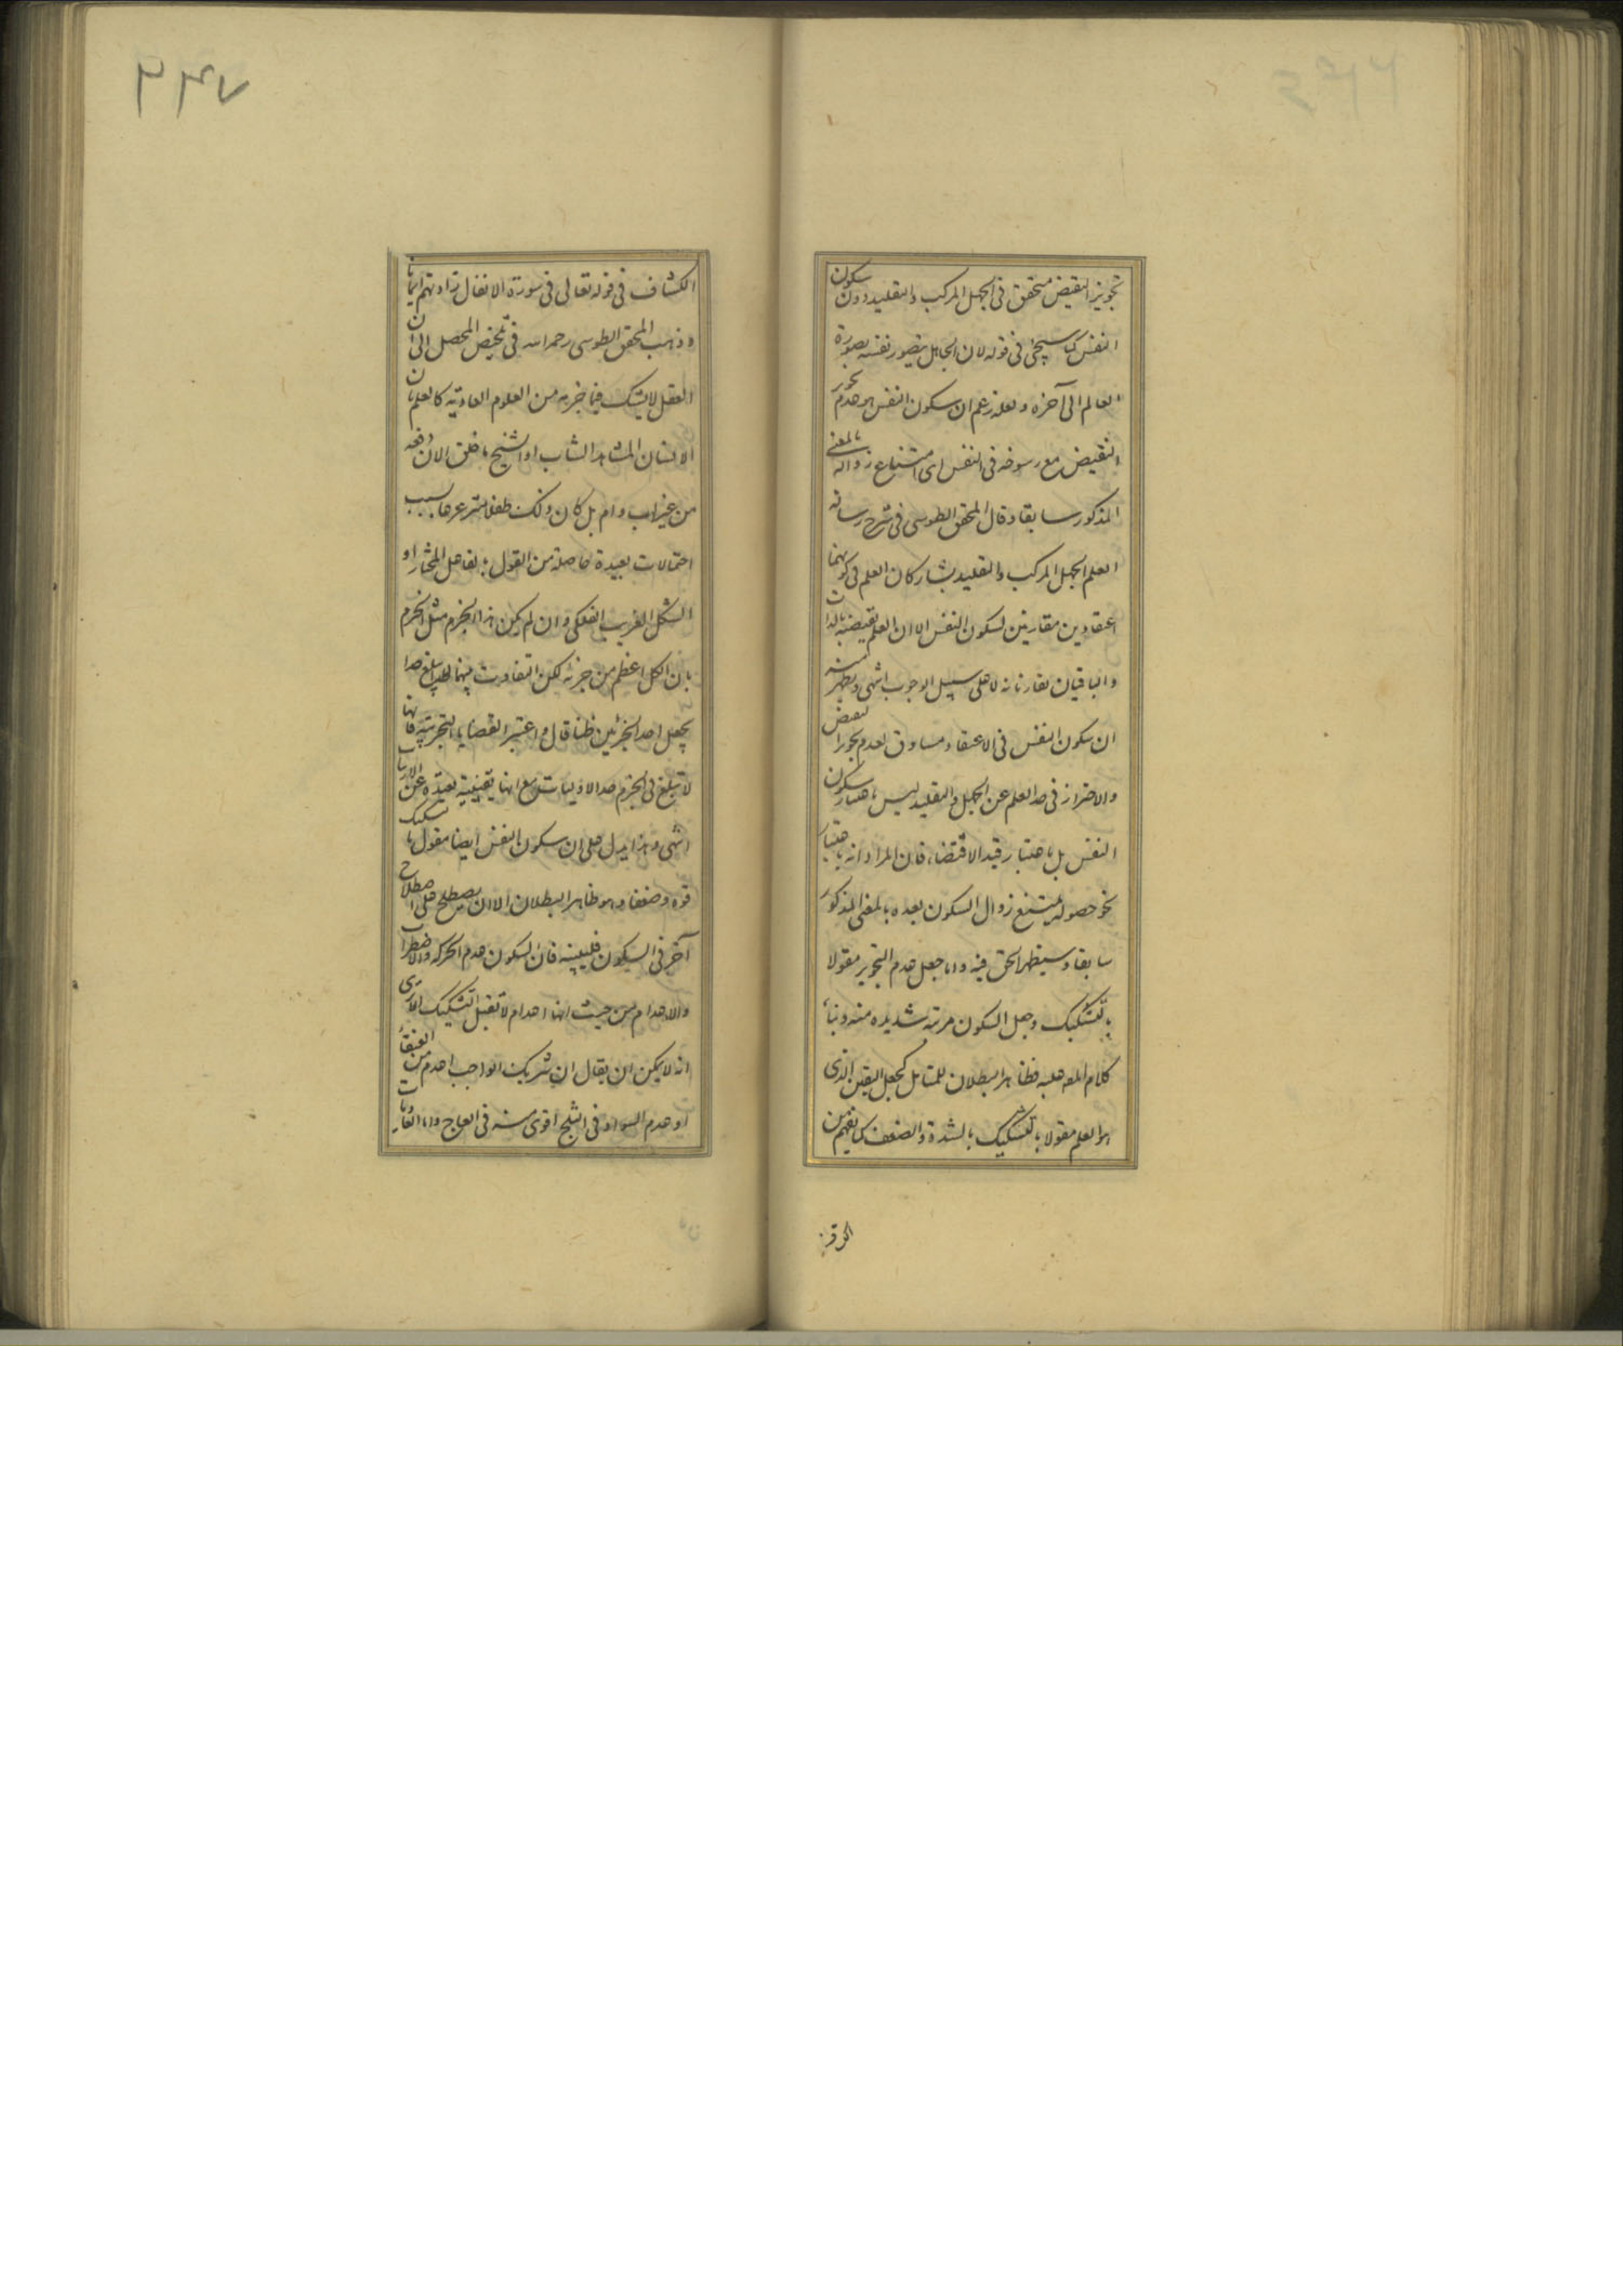 تجويز النقيض متحقق فى الجهل المركب والتقليد دون سكون
النفس كما سيجئ فى قوله لان الجاهل يتصور نفسه بصورة
العالم الى آخره ولعله زعم ان سكون النفس هو عدم تجويز
النقيض مع رسوخه فى النفس اى امتناع زواله بالمعنى
المذكور سابقا وقال المحقق الطوسى فى شرح رسالة
العلم الجهل المركب والتقليد يشاركان العلم فى كونهما
اعتقادين مقارنين لسكون النفس الا ان العلم يقتضيه بالذات
والباقيان يقارنانه لا على سبيل الوجوب انتهى ويظهر منه
ان سكون النفس فى الاعتقاد مساوق لعدم تجويز النقيض
والاحتراز فى حد العلم عن الجهل والتقليد ليس باعتبار سكون
النفس بل باعتبار قيد الاقتضاء فان المراد انه باعتبار
نحو حصوله يمتنع زوال السكون بعده بالمعنى المذكور
سابقا وسيظهر الحق فيه واما جعل عدم التجويز مقولا
بالتشكيك وجعل السكون مرتبة شديدة منه وبناء
كلام المص عليه فظاهر البطلان للمتامل كجعل اليقين الذى
هو العلم مقولا بالتشكيك بالشدة والضعف كما يفهم من
الكشاف فى قوله تعالى فى سورة الانفال زادتهم ايمانا
وذهب المحقق الطوسى رحمه الله فى تلخيص المحصل الى ان
العقل لا يشك فيما جزم به من العلوم العادية كالعلم بان
الانسان المشاهد الشاب او الشيخ ما خلق الان دفعة
من غير اب وام بل كان ذلك طفلا مترعرعا بسبب
احتمالات بعيدة حاصلة من القول بالفاعل المختار او
الشكل الغريب الفلكى وان لم يكن هذا الجزم مثل الجزم
بان الكل اعظم من جزئه لكن التفاوت بينهما لم يبلغ حدا
يجعل احد الجزئين ظنا قال واعتبر القضايا التجربية فانها
لا تبلغ فى الجزم حد الاوليات مع انها يقينية بعيدة عن الارتياب
انتهى وهذا يدل على ان سكون النفس ايضا مقول بالتشكيك
قوة وضعفا وهو ظاهر البطلان الا ان يصطلح على اصطلاح
آخر فى السكون فليبينه فان السكون عدم الحركة والاضطراب
والاعدام من حيث انها اعدام لا تقبل التشكيك الا ترى
انه لا يمكن ان يقال ان شريك الواجب اعدم من العنقاء
او عدم السواد فى الثلج اقوى منه فى العاج واما العاديات